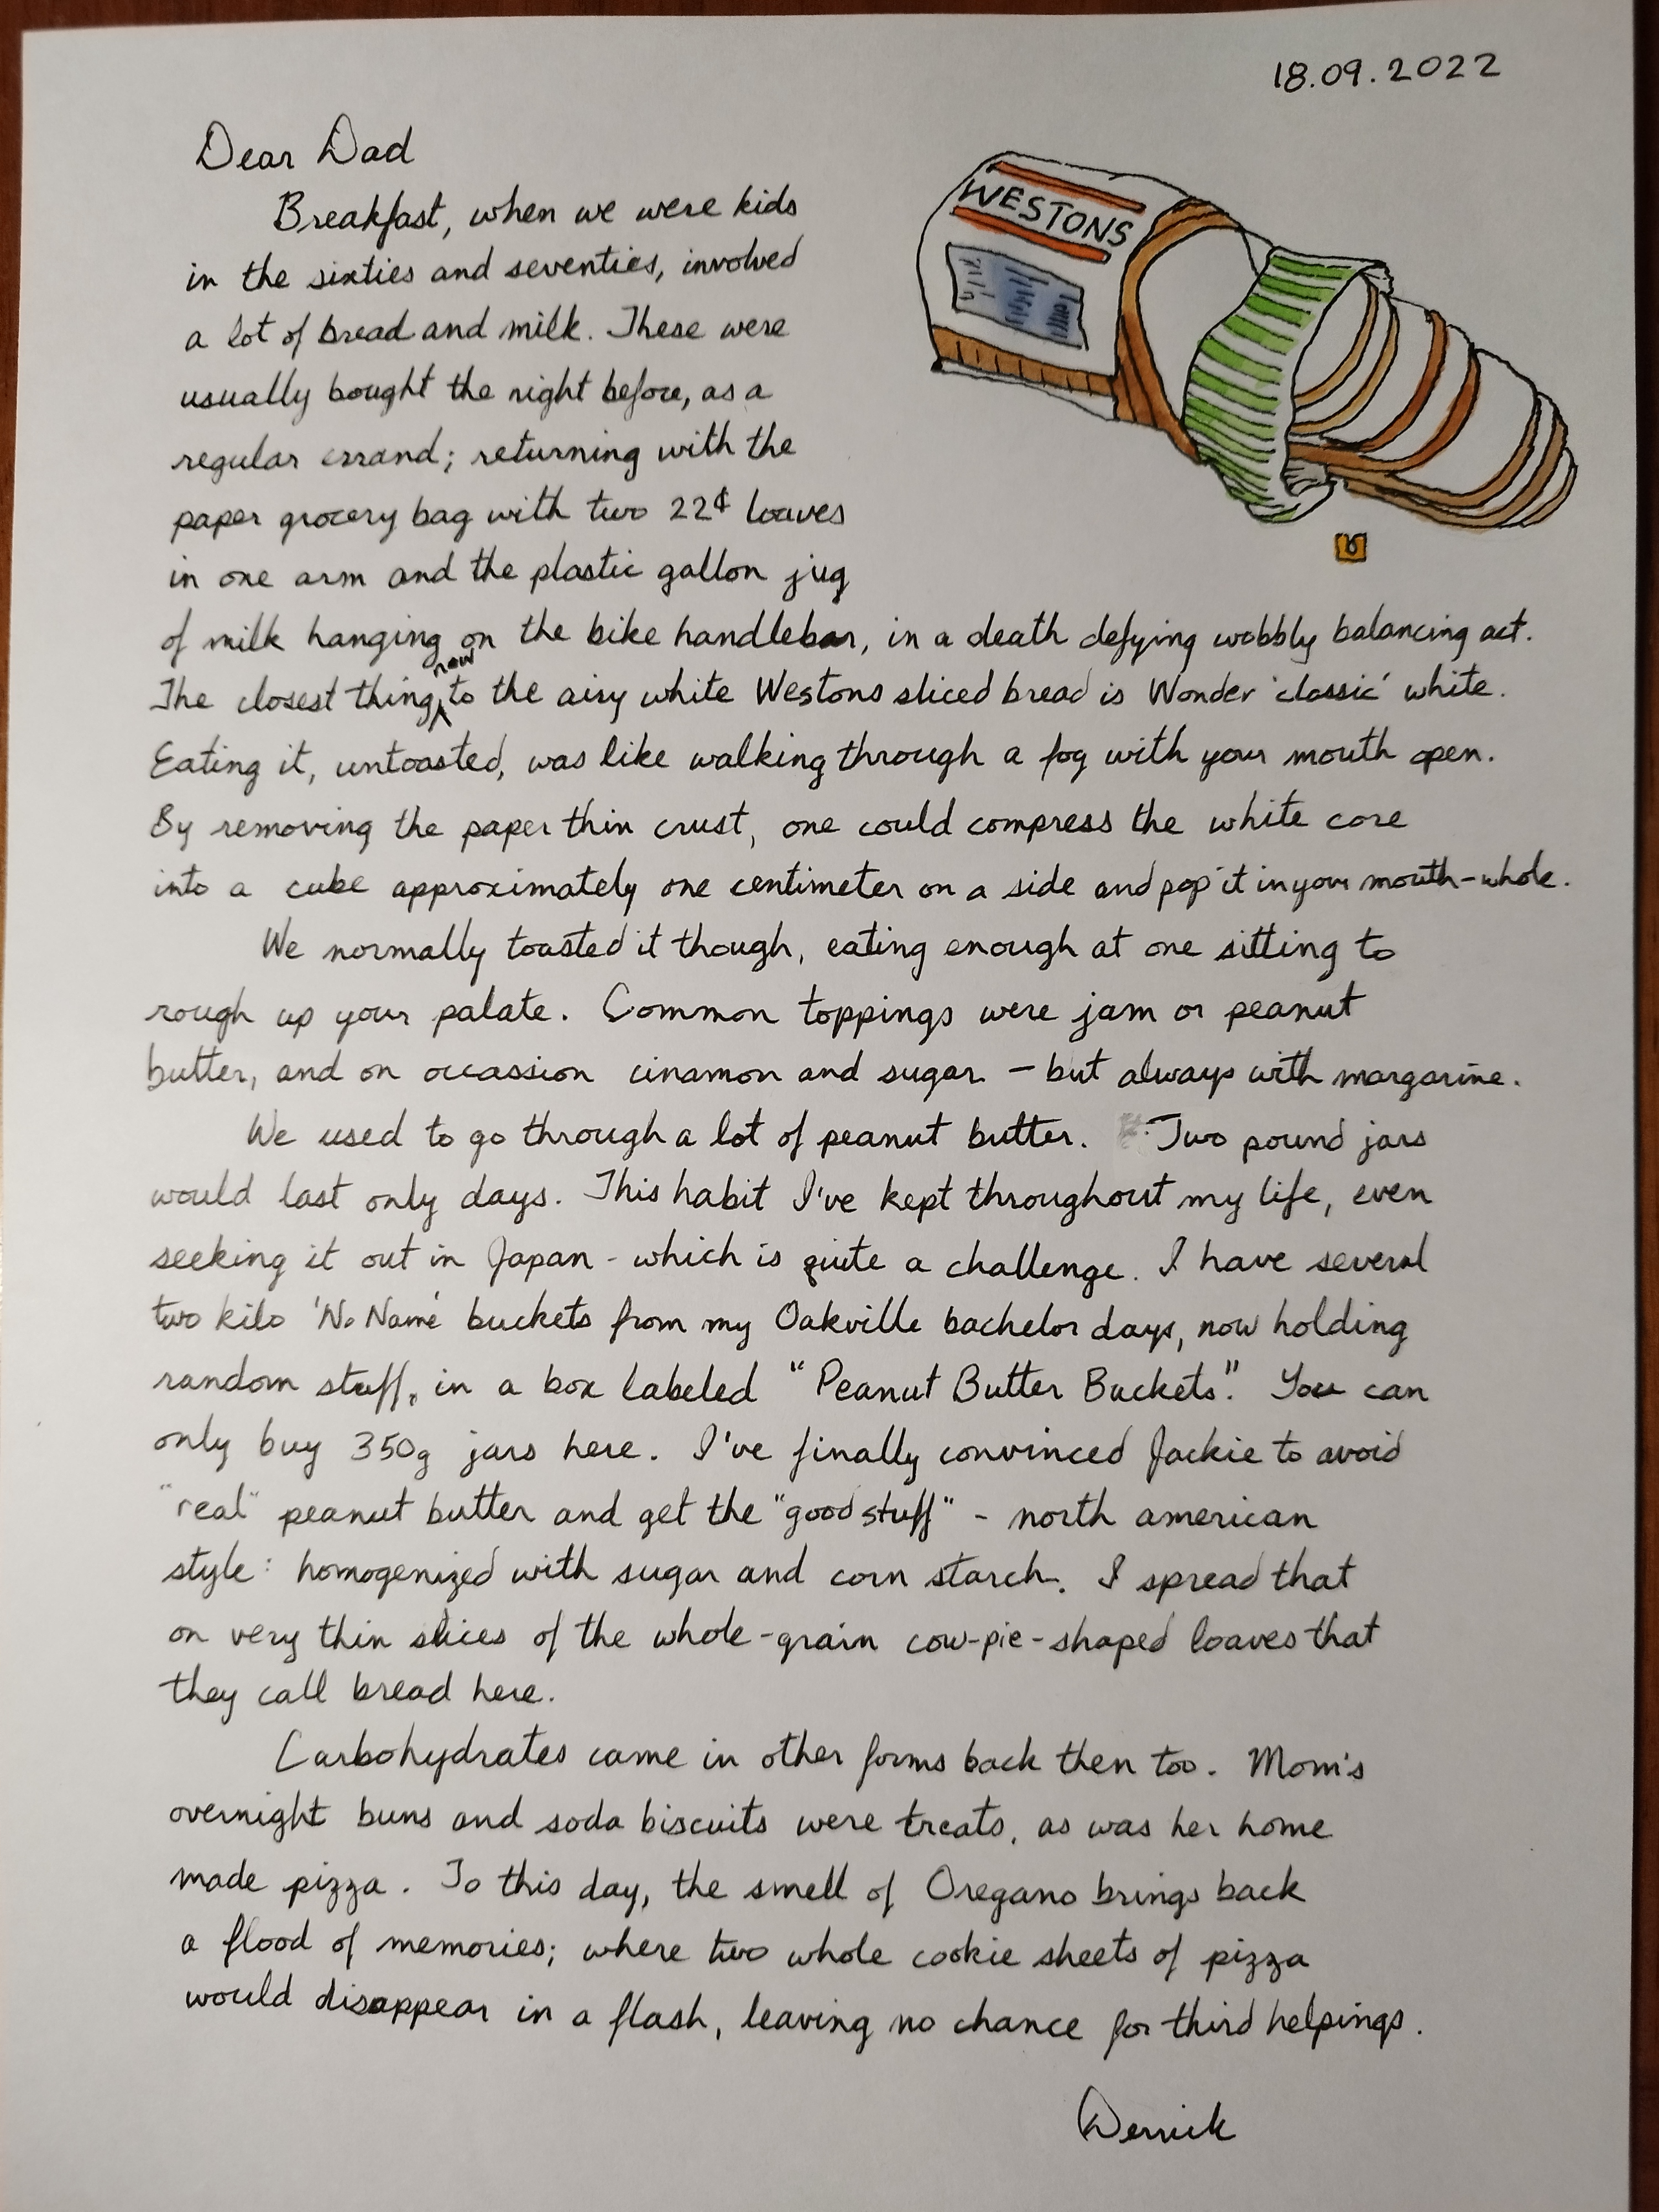 18.09.2022
Dear Dad
WESTONS
Breakfast, when we were kids
in the sixties and seventies, involved
a lot of bread and milk. These were
usually bought the night before, as a
regular errand; returning with the
paper grocery bag with two 22¢ loaves
in one arm and the plastic gallon jug
of milk hanging on the bike handlebar, in a death defying wobbly balancing act.
The closest thing now to the airy white Westons sliced bread is Wonder 'classic' white.
Eating it, untoasted, was like walking through a fog with your mouth open.
By removing the paper thin crust, one could compress the white core
into a cube approximately one centimeter on a side and pop it in your mouth-whole.
We normally toasted it though, eating enough at one sitting to
rough up your palate. Common toppings were jam or peanut
butter, and on occassion cinamon and sugar - but always with margarine.
We used to go through a lot of peanut butter. Two pound jars
would last only days. This habit I've kept throughout my life, even
seeking it out in Japan - which is quite a challenge. I have several
two kilo 'No Name' buckets from my Oakville bachelor days, now holding
random stuff, in a box labeled "Peanut Butter Buckets". You can
only buy 350g jars here. I've finally convinced Jackie to avoid
"real" peanut butter and get the "good stuff" - north american
style: homogenized with sugar and corn starch. I spread that
on very thin slices of the whole-grain cow-pie-shaped loaves that
they call bread here.
Carbohydrates came in other forms back then too. Mom's
overnight buns and soda biscuits were treats, as was her home
made pizza. To this day, the smell of Oregano brings back
a flood of memories; where two whole cookie sheets of pizza
would disappear in a flash, leaving no chance for third helpings.
Derrick